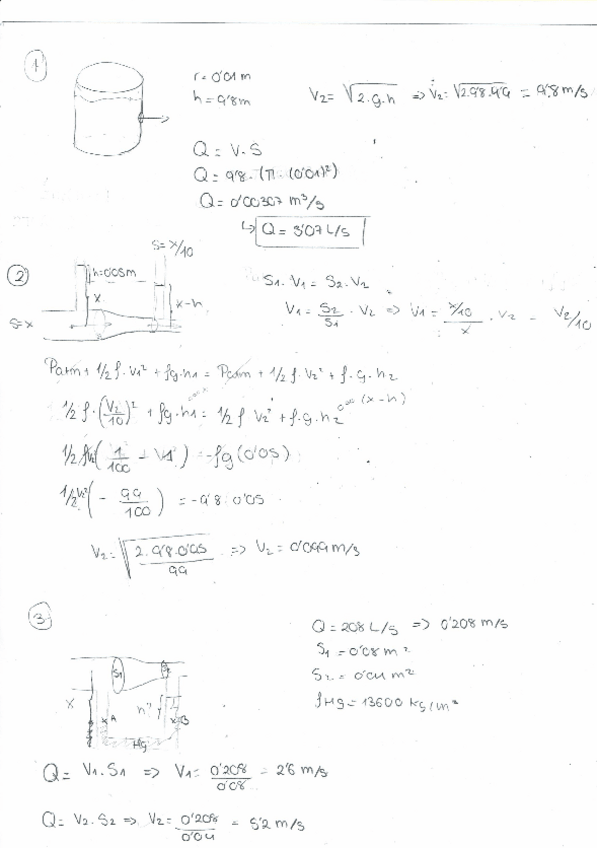 1
r = 0'01 m
h = 4'8 m
V2 = √2.g.h ⇒ V2 = √2.9'8.4'9 = 9'8 m/s
Q = V.S
Q = 9'8 . (π . (0'01)²)
Q = 0'00307 m³/s
↳ Q = 3'07 L/s
2
S = x/10
h = 0'05m
x
x-h
S = x
S1 . V1 = S2 . V2
V1 = S2/S1 . V2 ⇒ V1 = (x/10)/x . V2 = V2/10
Patm + 1/2 ρ . V1² + ρg . h1 = Patm + 1/2 ρ . V2² + ρ . g . h2
1/2 ρ . (V2/10)² + ρg . h1 = 1/2 ρ V2² + ρ . g . h2 (x-h)
1/2 ρV2² (1/100 - 1) = -ρg (0'05)
1/2 V2² (- 99/100) = -9'8 . 0'05
V2 = √(2 . 9'8 . 0'05 / 99) ⇒ V2 = 0'099 m/s
3
Q = 208 L/s ⇒ 0'208 m/s
S1 = 0'08 m²
S2 = 0'04 m²
ρHg = 13600 kg/m²
S1
S2
x
x A
h
x B
Hg
Q = V1 . S1 ⇒ V1 = 0'208/0'08 = 2'6 m/s
Q = V2 . S2 ⇒ V2 = 0'208/0'04 = 5'2 m/s